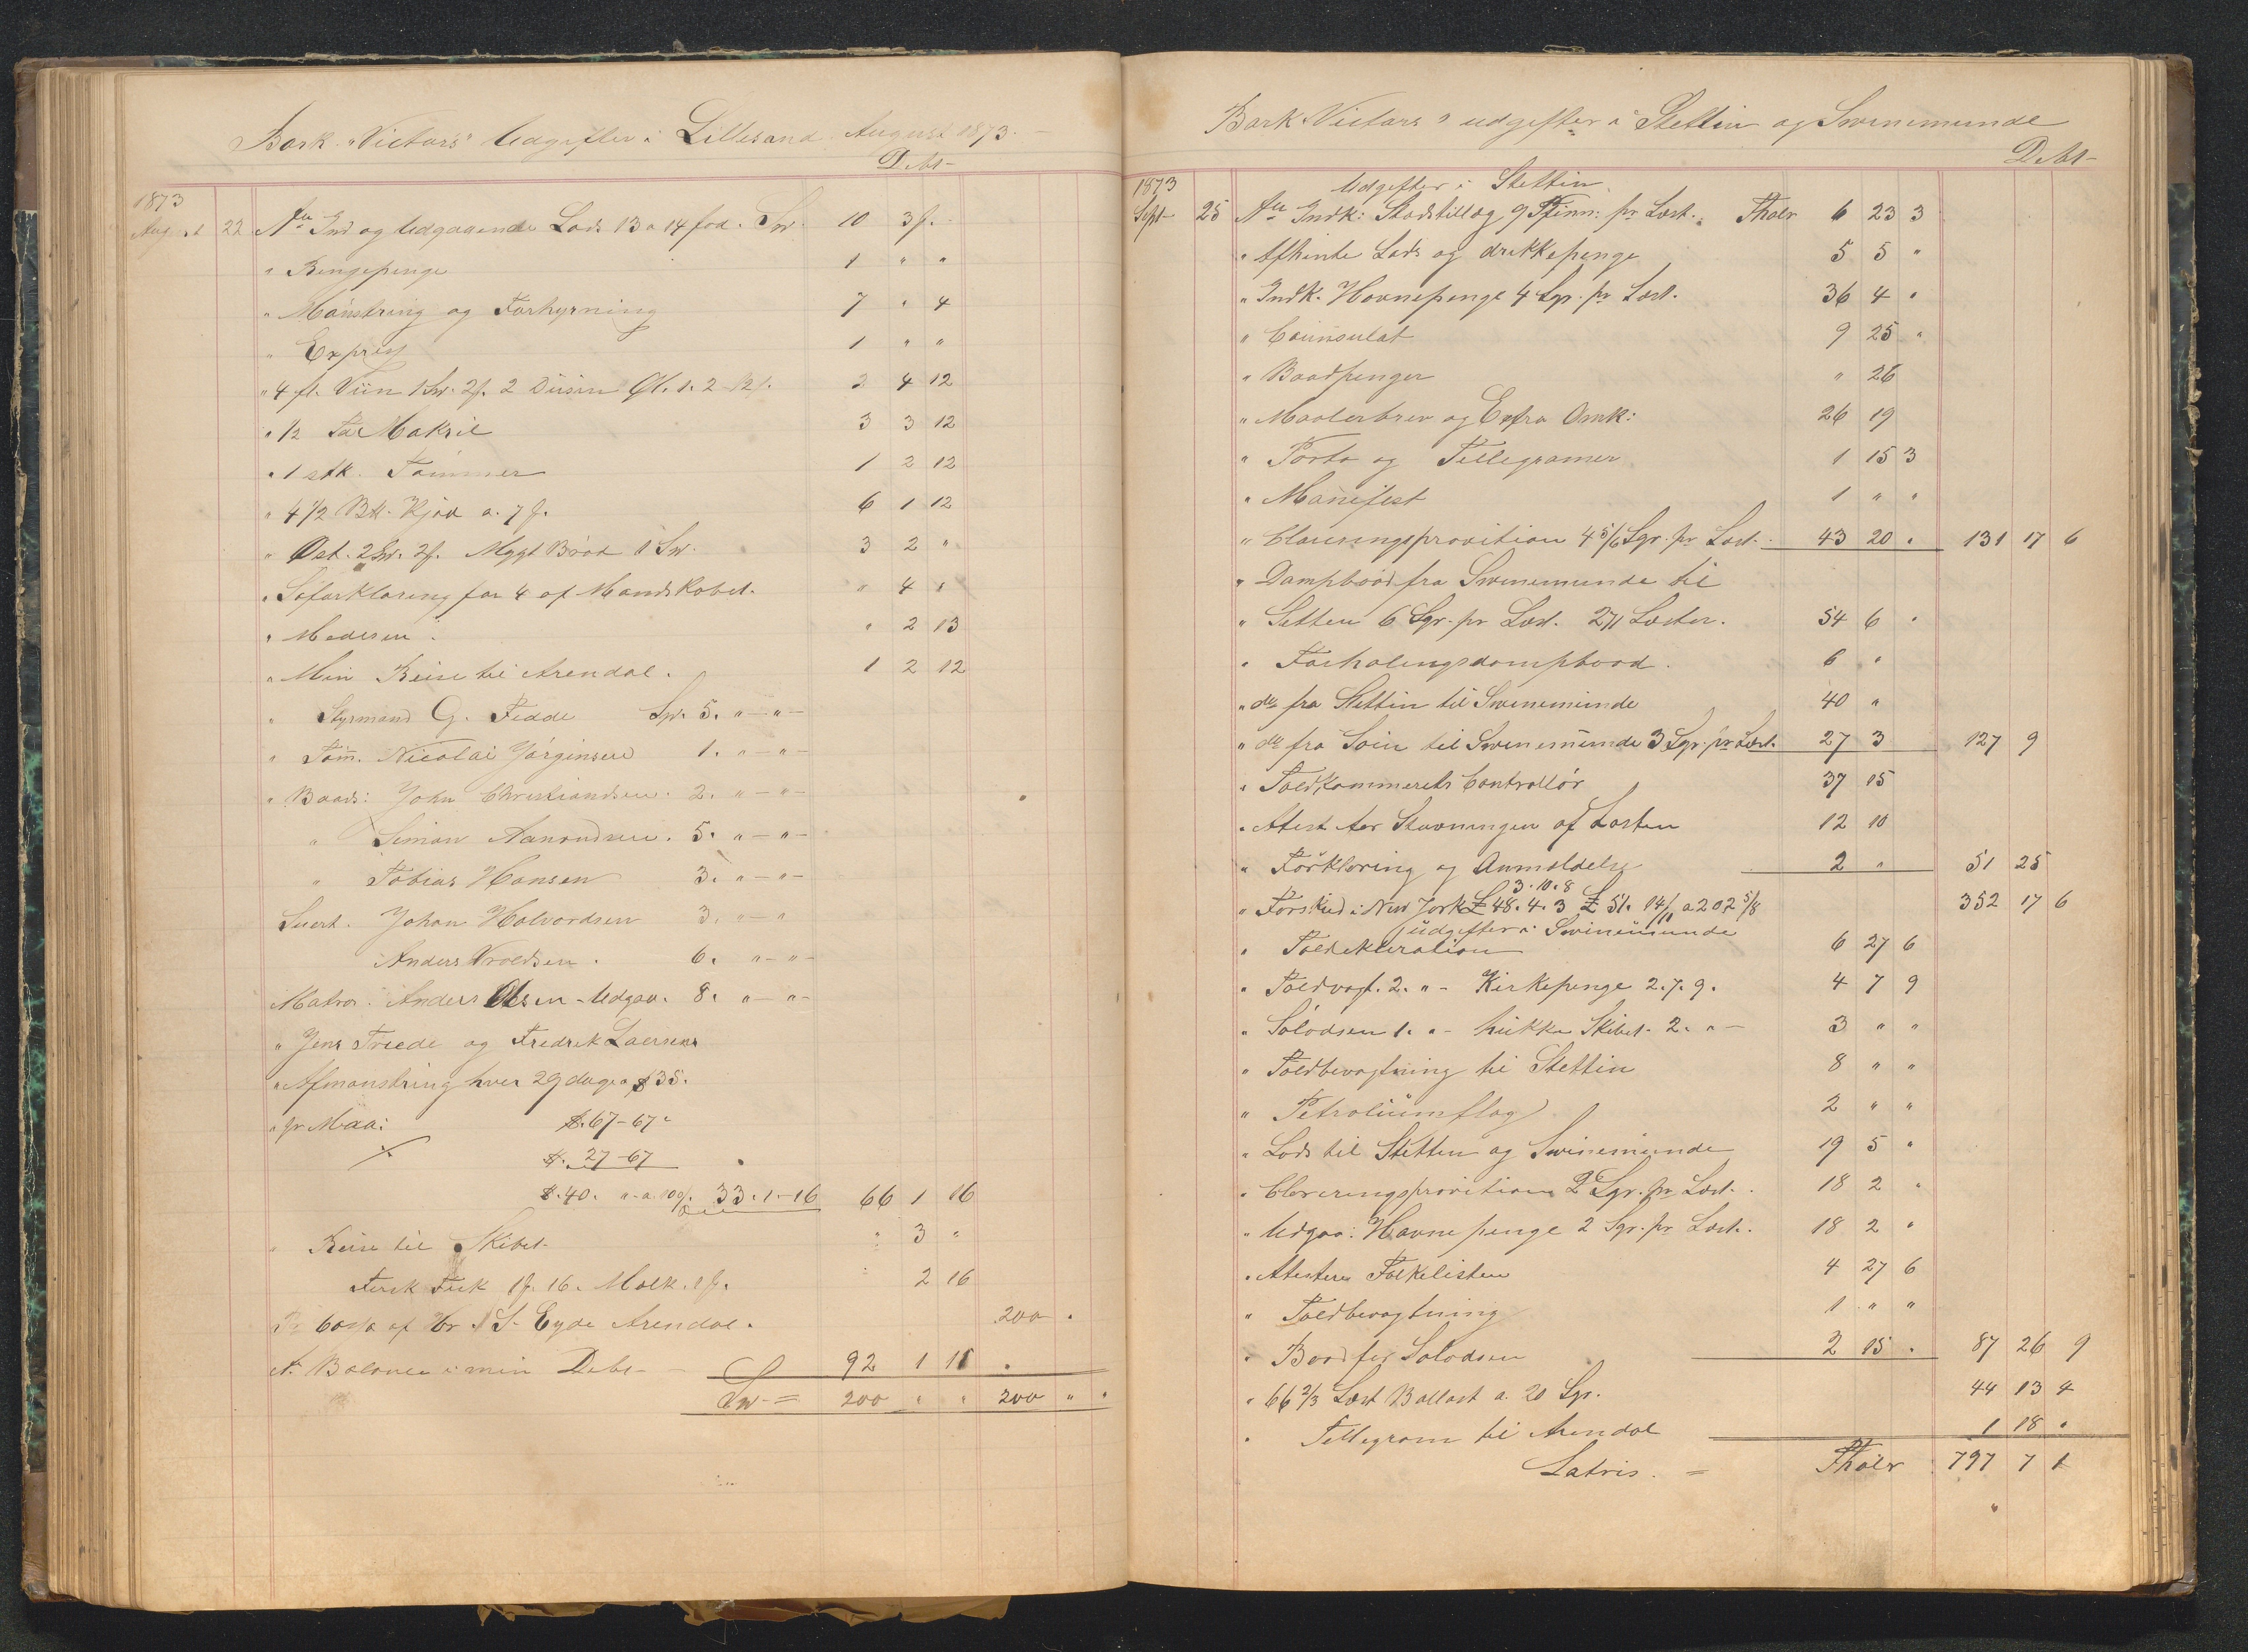 Bark "Victors" Udgifter i Lillesand August 1873.
Debt
1873
August 22 An Ind og Udgaaende Lods 13 a 14 fod. Sp. 10 3 f.
" Bengepenge 1 " "
" Mönstring og Forhyrning 7 " 4
" Expres 1 " "
" 4 fl. Viin 1 Sp. 2 f. 2 Düsin Øl. 1. 2 - 12 f. 2 4 12
" 1/2 Tde Makril 3 3 12
" 1 stk. Tömmer 1 2 12
" 4 1/2 B Kjöd a. 7 f. 6 1 12
" Ost. 2 Sp. 2 f. Mygt Bröd 1 Sp. 3 2 "
" Söforklaring for 4 af Mandskabet. " 4 "
" Medesin. " 2 13
" Min Reise til Arendal. 1 2 12
" Styrmand G. Fedde Sp. 5. " - " -
" Töm. Nicolai Jörginsen 1. " - " -
" Baads: John Christiandsen. 2. " - " -
" Simon Aanondsen. 5. " - " -
" Tobias Hansen 3. " - " -
Suert. Johan Halvordsen 3. " - "
Anders Vroldsen. 6. " - " -
Matros. Anders Olsen - Udgaa. 8. " - " -
" Jens Treede og Fredrek Laersens
" Afmönstring hver 29 dage a $35.
" pr Maa: $.67-67"
$. 27-67
$.40. " a 100/. 33.1-16 66 1 16
" Reise til Skibet " 3 "
Fersk Fisk 1 f. 16. Melk. 1 f. " 2 16
Pr Casta af Hr S. Eyde Arendal. 200 "
An Balance i min Debt 92 1 11
Sp. = 200 " " 200 " "
Bark "Victors" udgifter i Stettin og Swinemunde
Debt
Udgifter i Stettin
1873
Sept 25 An Indk: Stadstillæg 9 Pfinn: pr Læst. Thalr 6 23 3
" Afhente Lods og drikkepenge 5 5 "
" Indk. Havnepenge 4 Sgr. pr Læst. 36 4 "
" Counsulat 9 25 "
" Baadpenger " 26
" Maalerbrev og Extra Omk: 26 19
" Porto og Tellegramer 1 15 3
" Manifest 1 " "
" Clareringsprovition 4 5/6 Sgr. pr Læst. 43 20 " 131 17 6
" Dampbaad fra Swinemunde til
" Setten 6 Sgr. pr Læst. 271 Læster. 54 6 "
" Forhalingsdampbaad. 6 "
" do fra Stettin til Swinemünde 40 "
" do fra Söin til Swinemünde 3 Sgr. pr Læst. 27 3 127 9
" Toldkammerets Controllör 37 15
" Atest for Stuvningen af Lasten 12 10
" Forklaring og Anmeldelse 2 " 51 25
3.10.8
" Forskud i New York £ 48.4.3 £ 51. 14/11 a 202 5/8 352 17 6
Udgifter i Swinemunde
" Toldekleration 6 27 6
" Toldvagt. 2. " - Kirkepenge 2.7.9. 4 7 9
" Sölodsen 1. " - hükke Skibet 2. " - 3 " "
" Toldbevogtning til Stettin 8 " "
" Petroliümflag 2 " "
" Lods til Stetten og Swinemünde 19 5 "
" Clareringsprovition 2 Sgr. pr Læst. 18 2 "
" Udgaa: Havnepenge 2 Sgr. pr Læst. 18 2 "
" Atestere Folkelisten 4 27 6
" Toldbevogtning 1 " "
" Baad for Solodsen 2 15 " 87 26 9
" 66 2/3 Læst Ballast a. 20 Sgr. 44 13 4
" Tellegram til Arendal 1 18 "
Latris. = Thaler 797 7 1